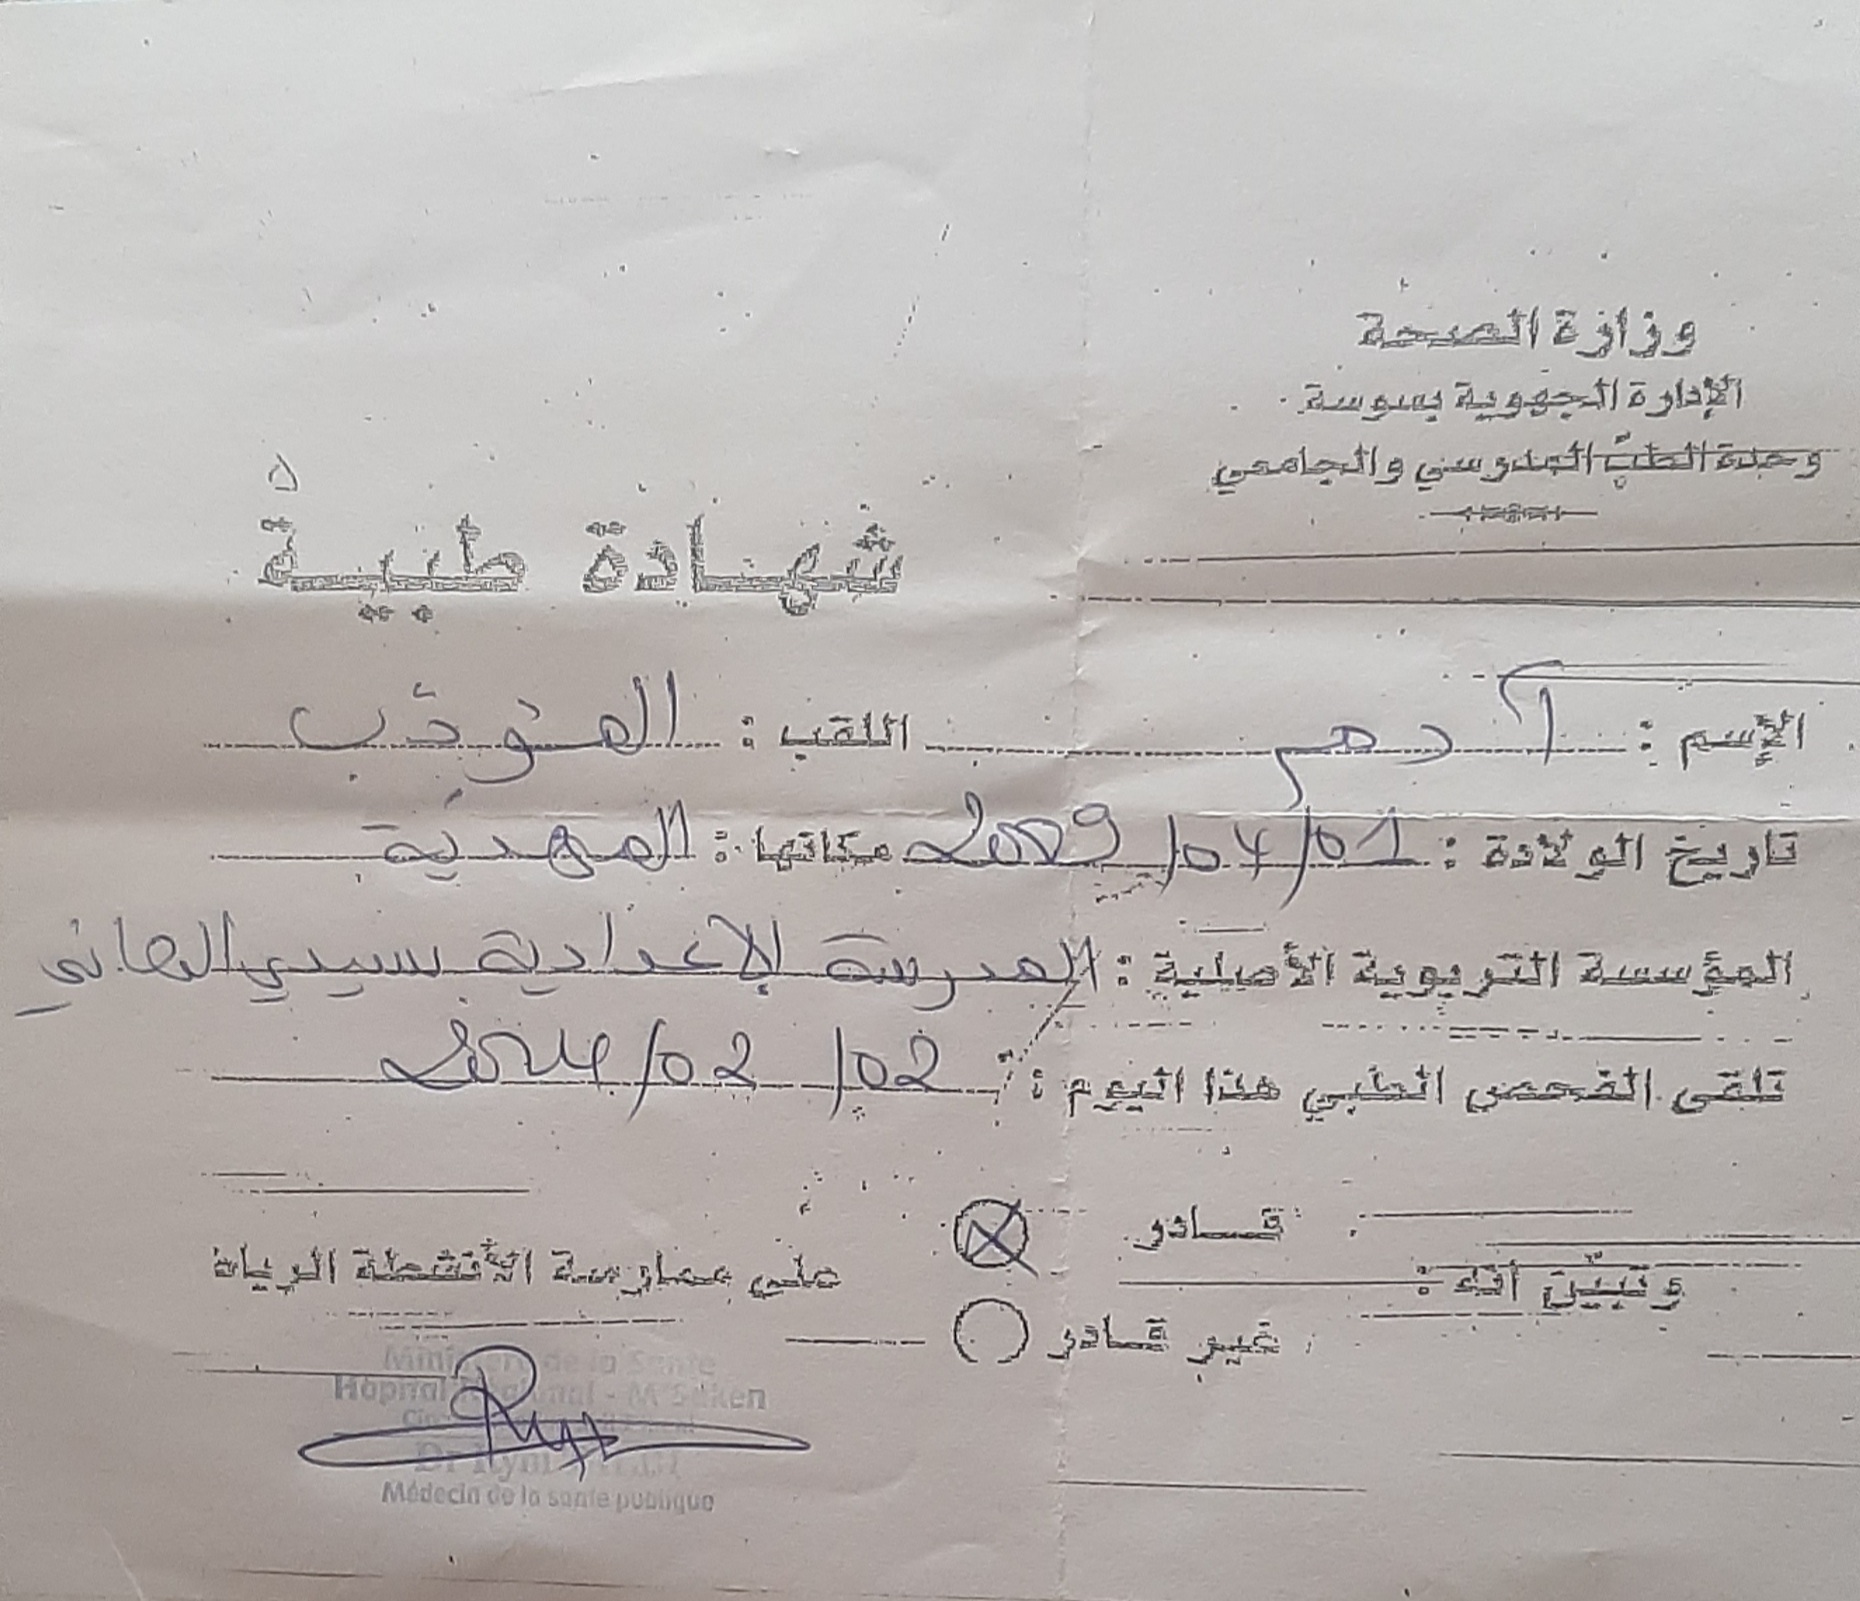 وزارة الصحة
الإدارة الجهوية بسوسة
وحدة الطبّ المدرسي والجامعي
شهادة طبية
الإسم : آدهم اللقب : المؤدّب
تاريخ الولادة : 01/04/2009 مكانها : المهدية
المؤسسة التربوية الأصلية : المدرسة الإعدادية بسيدي الهاني
تلقى الفحص الطبي هذا اليوم : 02/02/2024
وتبيّن أنّه : قادر
غير قادر
على ممارسة الأنشطة الرياض
Ministere de la Sante
Hopital Régional - M'Saken
Dr Rym
Médecin de la santé publique